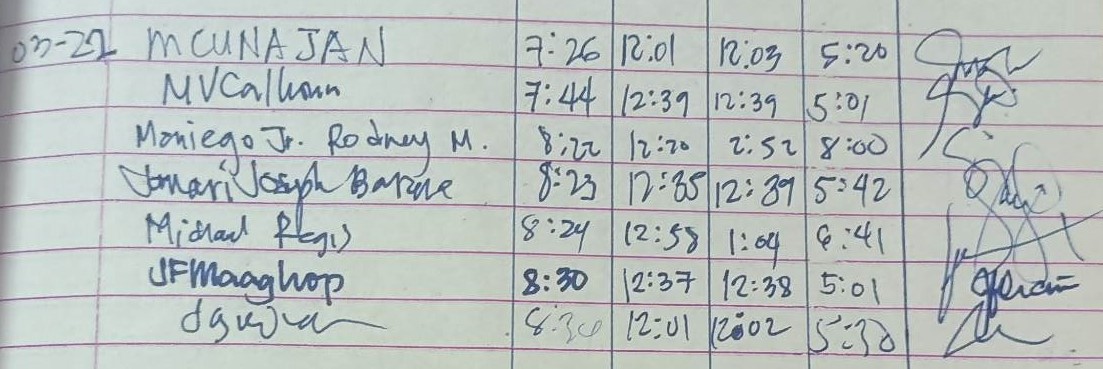 03-22 MCUNAJAN 7:26 12:01 12:03 5:20
MVCalhoun 7:44 12:39 12:39 5:01
Maniego Jr. Rodney M. 8:22 12:20 2:52 8:00
Jomari Joseph 8:23 12:35 12:39 5:42
Michael Regis 8:24 12:58 1:04 6:41
JFMaaghop 8:30 12:37 12:38 5:01
8:30 12:01 12:02 5:30